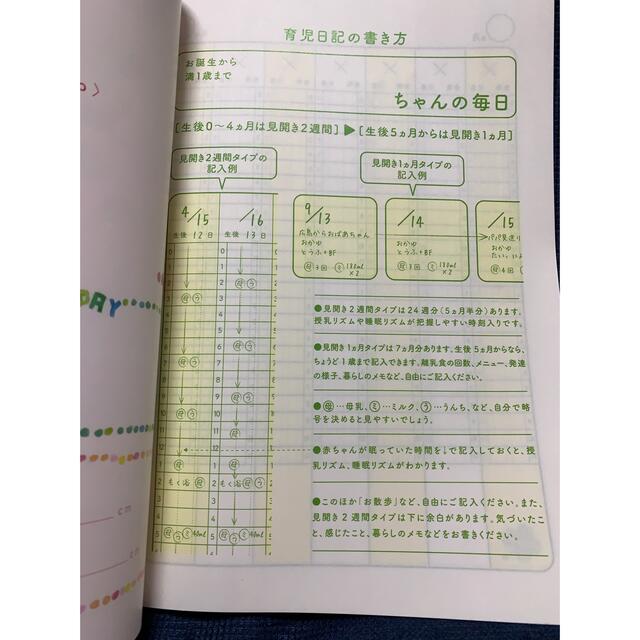 カ月
育児日記の書き方
お誕生から
満1歳まで
ちゃんの毎日
[生後0〜4ヵ月は見開き2週間]▶[生後5ヵ月からは見開き1ヵ月]
見開き2週間タイプの
記入例
見開き1ヵ月タイプの
記入例
4/15 /16
生後 12日 生後 13日
9/13
広島からおばあちゃん
おかゆ
とうふ+BF
母3回 ミ180ml
×2
/14
おかゆ
とうふ+BF
母3回 ミ180ml
×2
/15
パパ見送り
おかゆ
母4回
0 0
1 1
2 2 母う
3 母う 3
4 4
5 5
6 6 母う
7 母う 7
8 8
9 9
10 母う 10
11 11 母
12 12
1 母 1
2 もく浴 母 2 もく浴 母う
3 3
4 4
5 母うミ40ml 5 母うミ40ml
●見開き2週間タイプは24週分(5ヵ月半分)あります。
授乳リズムや睡眠リズムが把握しやすい時刻入りです。
●見開き1ヵ月タイプは7ヵ月分あります。生後5ヵ月からなら、
ちょうど1歳まで記入できます。離乳食の回数、メニュー、発達
の様子、暮らしのメモなど、自由にご記入ください。
●母…母乳、ミ…ミルク、う…うんち、など、自分で略
号を決めると見やすいでしょう。
●赤ちゃんが眠っていた時間を↓で記入しておくと、授
乳リズム、睡眠リズムがわかります。
●このほか「お散歩」など、自由にご記入ください。また、
見開き2週間タイプは下に余白があります。気づいたこ
と、感じたこと、暮らしのメモなどをお書きください。
DAY
cm
cm